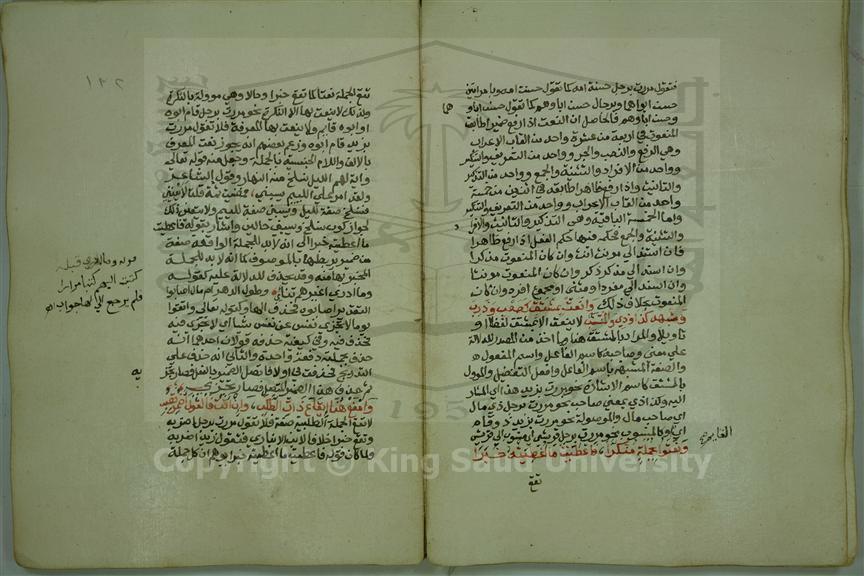 فتقول مررت برجل حسنة امه كما تقول حسنت امه وبامراتين
حسن ابواهما وبرجال حسن اباوهم كما تقول حسن ابواهما
وحسن اباوهم فالحاصل ان النعت اذا رفع ضميرا طابق
المنعوت في اربعة من عشرة واحد من القاب الاعراب
وهي الرفع والنصب والجر وواحد من التعريف والتنكير
وواحد من الافراد والتثنية والجمع وواحد من التذكير
والتانيث واذا رفع ظاهرا طابقه في اثنين من خمسة
واحد من القاب الاعراب وواحد من التعريف والتنكير
واما الخمسة الباقية وهي التذكير والتانيث والافراد
والتثنية والجمع فحكمه فيها حكم الفعل اذا رفع ظاهرا
فان اسند الى مونث انث وان كان المنعوت مذكرا
وان اسند الى مذكر ذكر وان كان المنعوت مونثا
وان اسند الى مفرد او مثنى او مجموع افرد وان كان
المنعوت بخلاف ذلك وانعت بمشتق كصعب وذرب
وشبهه كذا وذي والمنتسب لا ينعت الا بمشتق لفظا او
تاويلا والمراد بالمشتق هنا ما اخذ من المصدر للدلالة
على معنى وصاحبه كاسم الفاعل واسم المفعول
والصفة المشبهة باسم الفاعل وافعل التفضيل والموول
بالمشتق كاسم الاشارة نحو مررت بزيد هذا اي المشار
اليه وكذا ذي بمعنى صاحب نحو مررت برجل ذي مال
اي صاحب مال والموصولة نحو مررت بزيد ذو قام
اي القايم والمنتسب نحو مررت برجل قرشي اي منسوب الى قريش
ونعتوا بجملة منكرا فاعطيت ما اعطيته خبرا
تقع
تقع الجملة نعتا كما تقع خبرا وحالا وهي موولة بالنكرة
ولذلك لا ينعت بها الا النكرة نحو مررت برجل قام ابوه
او ابوه قايم ولا ينعت بها المعرفة فلا تقول مررت
بزيد قام ابوه وزعم بعضهم انه يجوز نعت المعرف
بالالف واللام الجنسية بالجملة وجعل منه قوله تعالى
واية لهم الليل نسلخ منه النهار وقول الشاعر
ولقد امر على اللييم يسبني فمضيت ثمة قلت لا يعنيني
فنسلخ صفة لليل ويسبني صفة للييم ولا يتعين ذلك
لجواز كون نسلخ ويسبني حالين واشار بقوله فاعطيت
ما اعطيته خبرا الى انه لا بد للجملة الواقعة صفة
من ضمير يربطها بالموصوف كما انه لا بد للجملة
المخبر بها منه وقد يحذف للدلالة عليه كقوله
وما ادري اغيرهم تناء وطول الدهر ام مال اصابوا
التقدير اصابوه فحذف الهاء وكقوله تعالى واتقوا
يوما لا تجزي نفس عن نفس شيا اي لا تجزي فيه
فحذف فيه وفي كيفية حذفه قولان احدهما انه
حذف بجملته دفعة واحدة والثاني انه حذف على
التدريج فحذفت في اولا فاتصل الضمير بالفعل فصار تجزيه
ثم حذف هذا الضمير المتصل فصار تجزي
وامنع هنا ايقاع ذات الطلب وان اتت فالقول اضمر تصب
لا تقع الجملة الطلبية صفة فلا تقول مررت برجل اضربه
وتقع خبرا خلافا لابن الانباري فتقول زيد اضربه
ولما كان قوله فاعطيت ما اعطيته خبرا يوهم ان كل جملة
قوله وما ادري قبله
كتبت اليهم كتبا مرارا
فلم يرجع الي لها جواب اه
به
هما